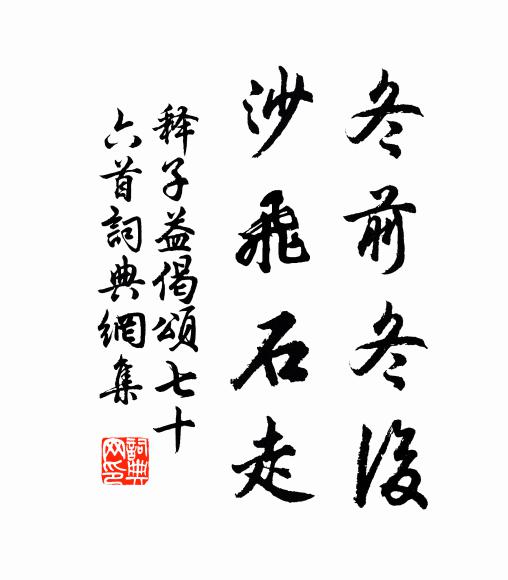 冬前冬後
沙飛石走
释子益偈頌七十
六首詞典網集
詞典网印